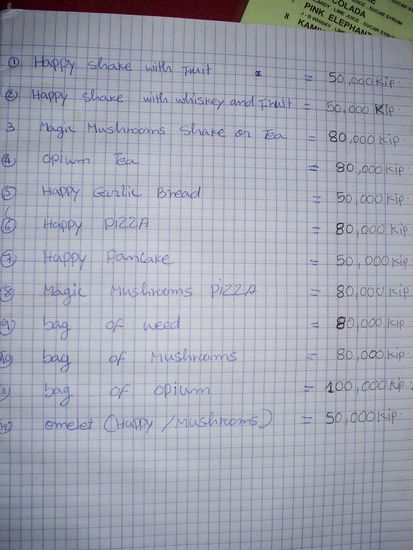 COLADA
7 PINK ELEPHANT
8 KAMI
① Happy Shake with Fruit = 50,000 Kip
② Happy Shake with whiskey and Fruit = 50,000 Kip
3 Magic Mushrooms Shake or Tea = 80,000 Kip
④ Opium Tea = 80,000 Kip
⑤ Happy Garlic Bread = 50,000 Kip
⑥ Happy PiZZA = 80,000 Kip
⑦ Happy Pancake = 50,000 Kip
⑧ Magic Mushrooms PiZZA = 80,000 Kip
⑨ bag of weed = 80,000 Kip
⑩ bag of Mushrooms = 80,000 Kip
⑪ bag of opium = 100,000 Kip
⑫ omelet (Happy / Mushrooms) = 50,000 Kip